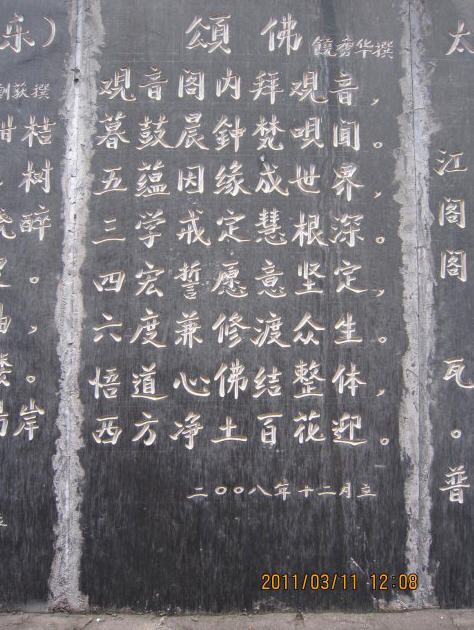 乐）
荻撰
柑桔
树
醉
岸
頌佛
观音阁内拜观音，
暮鼓晨鈡梵呗闻。
五蕴因缘成世界，
三学戒定慧根深。
四宏誓愿意坚定，
六度兼修渡众生。
悟道心佛结整体，
西方净土百花迎。
二〇〇八年十二月立
太
江
阁
阁
瓦
。
普
2011/03/11 12:08